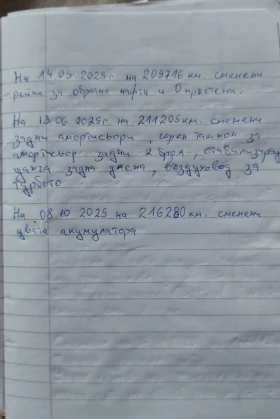 На 14.05.2025г. на 209716 км. сменени
ремък за обратна карта и О пръстени.
На 13.06 2025г. на 211205км. сменени
задни амортисьори, горен тампон за
амортисьор задни 2 броя, стабилизираща
щанга задна дясна, въздуховод за
турбото
На 08.10 2025 на 216280км. сменени
двата акумулатора